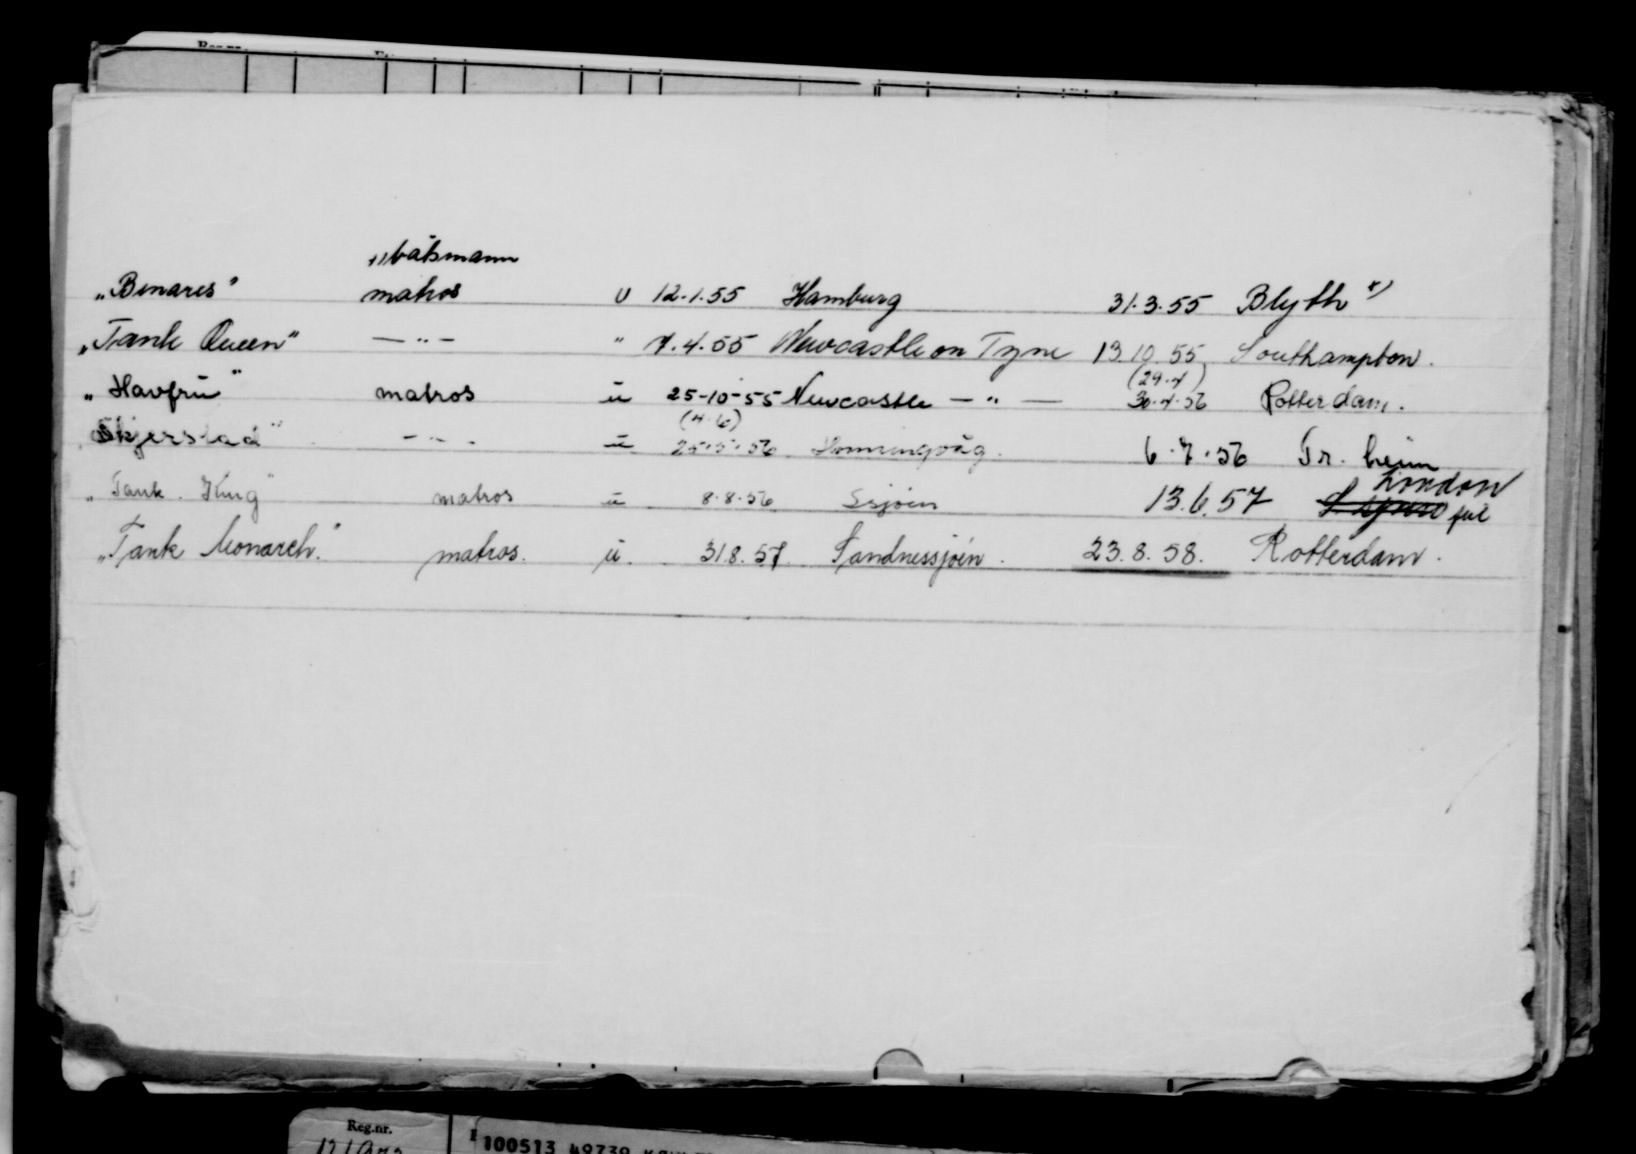 *) båtsmann
„Benares" matros u 12.1.55 Hamburg 31.3.55 Blyth *)
„Tank Queen" — „ — " 7.4.55 Newcastle on Tyne 13.10.55 Southampton.
(29.4)
„Havfru" matros u 25-10-55 Newcastle — „ — 30.4.56 Rotterdam.
(4.6)
Skjerstad" - „ - u 25.5.56 Honningvåg. 6.7.56 Tr.heim
London
„Tank King" matros u 8.8.56 Ssjøen 13.6.57
„Tank Monarch." matros. u. 31.8.57. Sandnessjøen. 23.8.58. Rotterdam.
Reg.nr.
100513 49739